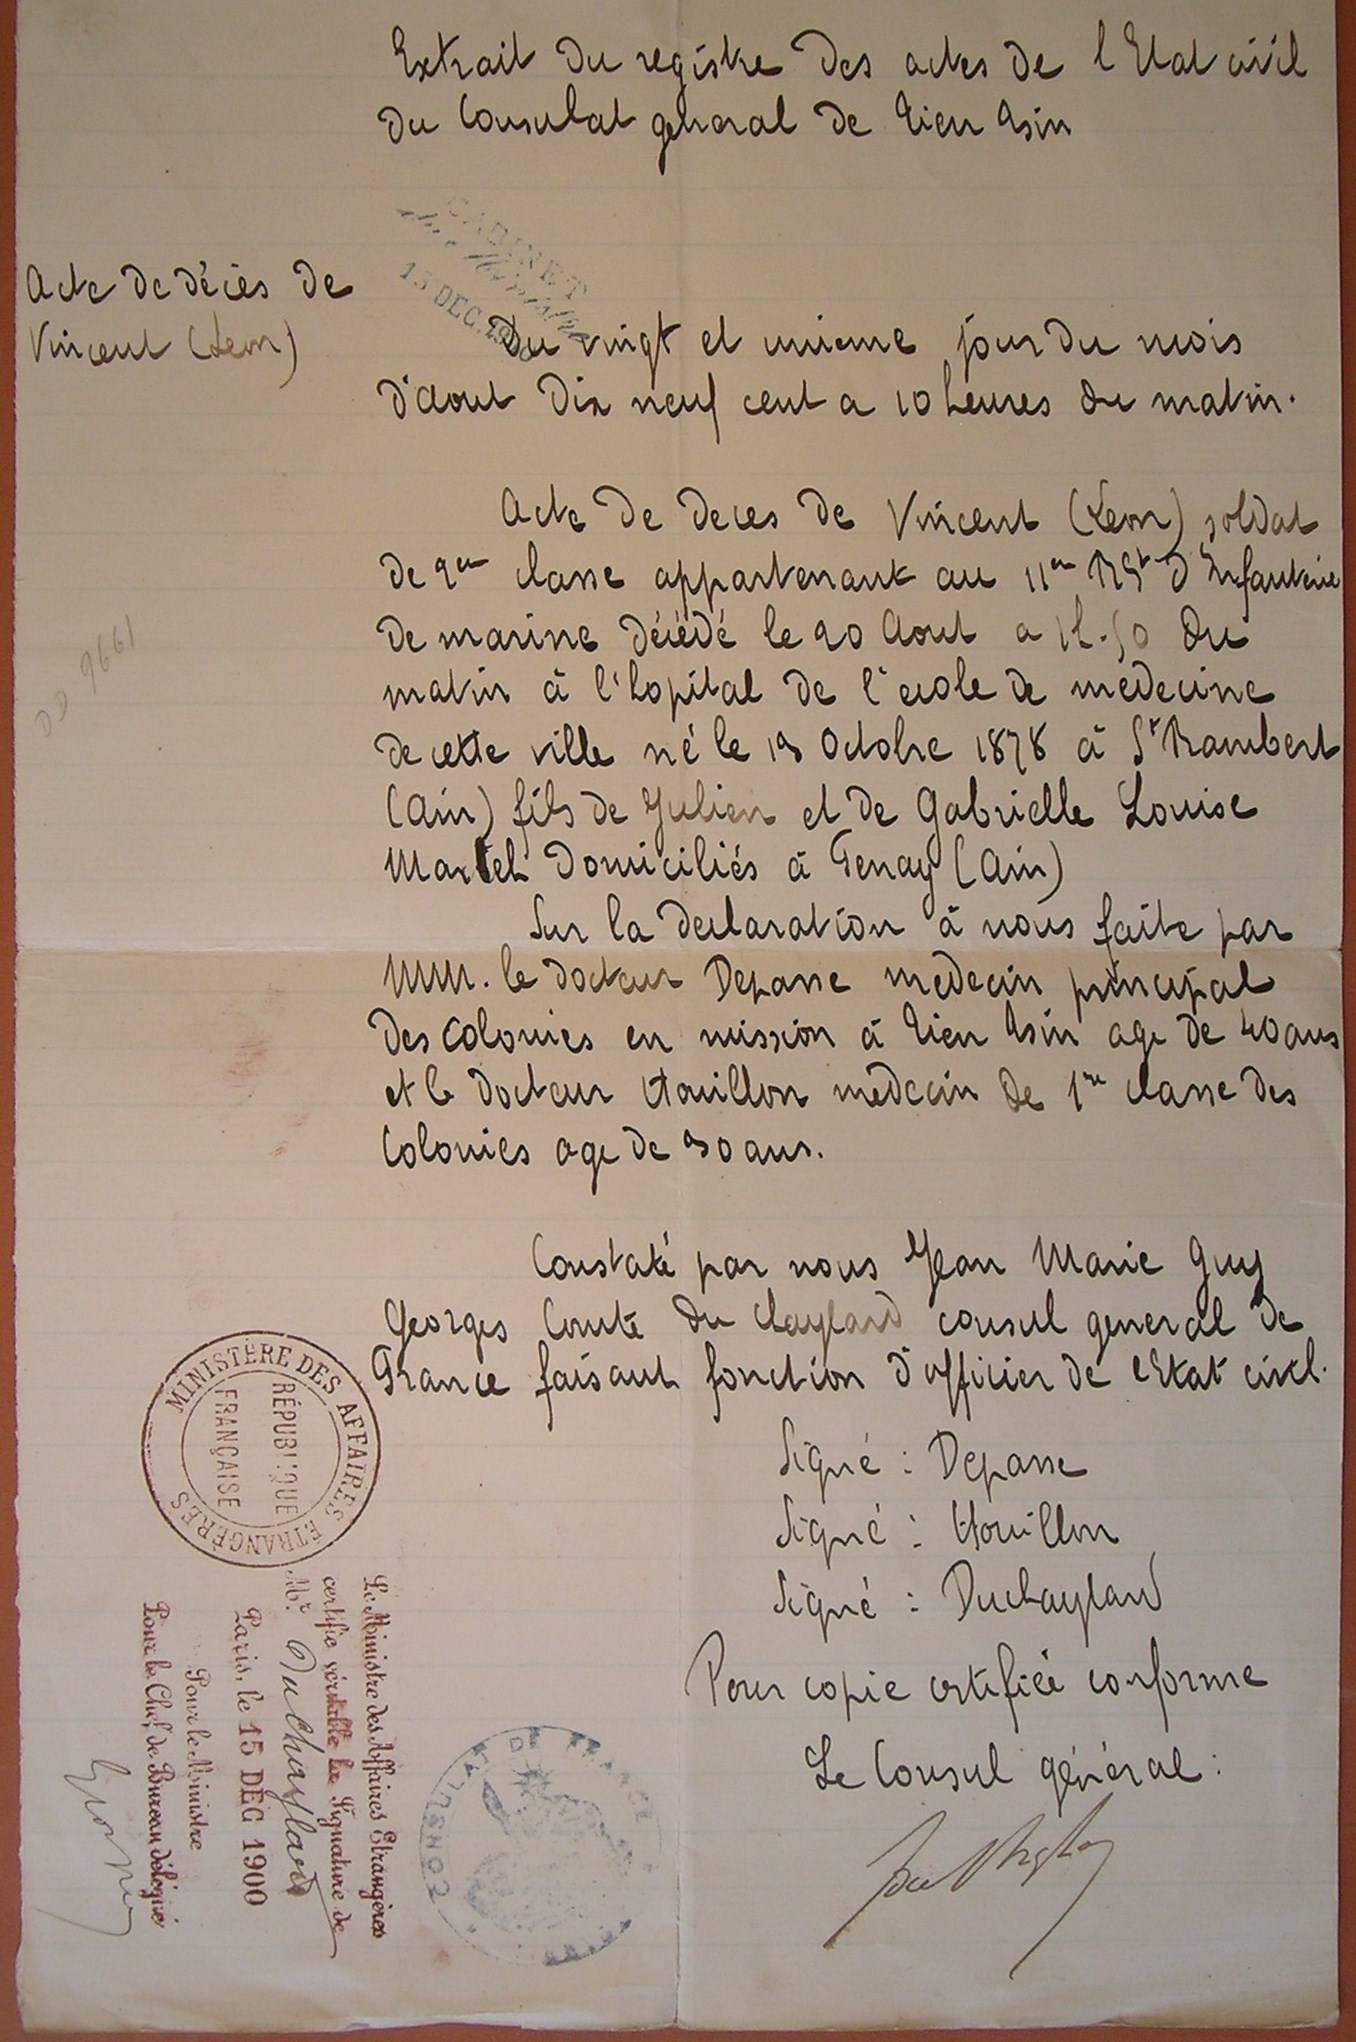 Extrait du registre des actes de l'Etat civil
du Consulat general de Tien Tsin
CABINET
13 DEC. 19
Acte de décès de
Vincent (Leon)
Du vingt et unieme jour du mois
d'Aout dix neuf cent a 10 heures du matin.
Acte de deces de Vincent (Leon) soldat
de 2eme classe appartenant au 11em RGt d'Infanterie
de marine décédé le 20 Aout a 1h.50 du
matin à l'hopital de l'ecole de medecine
de cette ville né le 13 Octobre 1878 à St Rambert
(Ain) fils de Julien et de Gabrielle Louise
Martel domiciliés à Tenay (Ain)
Sur la declaration à nous faite par
MM. le docteur Depasse medecin principal
des colonies en mission à Tien Tsin age de 40 ans
et le docteur Houillon medecin de 1re classe des
Colonies age de 30 ans.
DD 9661
Constaté par nous Jean Marie Guy
Georges Comte du Chaylard consul general de
France faisant fonction d'officier de l'Etat civil.
Signé : Depasse
Signé : Houillon
Signé : Duchaylard
Pour copie certifiée conforme
Le Consul général :
MINISTÈRE DES AFFAIRES ÉTRANGÈRES
RÉPUBLIQUE
FRANÇAISE
Le Ministre des Affaires Etrangères
certifie véritable la Signature de
Mr. du Chaylard
Paris, le 15 DEC 1900
Pour le Ministre
Pour le Chef de Bureau délégué
CONSULAT DE FRANCE